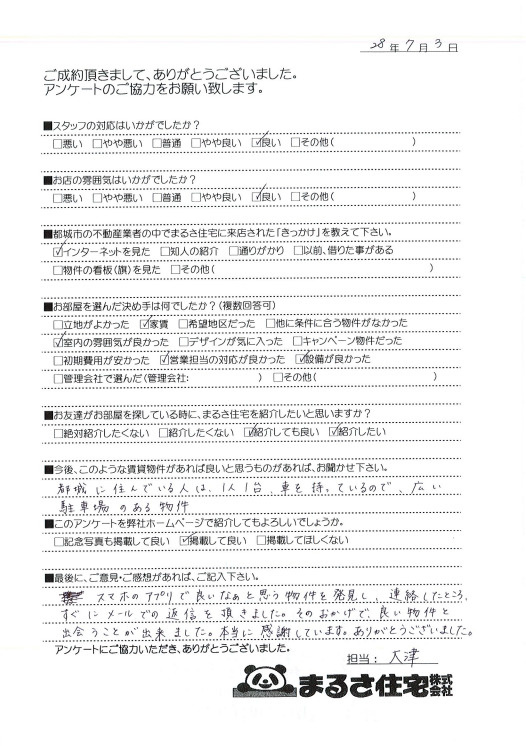 28年7月3日
ご成約頂きまして、ありがとうございました。
アンケートのご協力をお願い致します。
■スタッフの対応はいかがでしたか?
□悪い □やや悪い □普通 □やや良い ☑良い □その他( )
■お店の雰囲気はいかがでしたか?
□悪い □やや悪い □普通 □やや良い ☑良い □その他( )
■都城市の不動産業者の中でまるさ住宅に来店された「きっかけ」を教えて下さい。
☑インターネットを見た □知人の紹介 □通りがかり □以前、借りた事がある
□物件の看板(旗)を見た □その他( )
■お部屋を選んだ決め手は何でしたか?(複数回答可)
□立地がよかった ☑家賃 □希望地区だった □他に条件に合う物件がなかった
☑室内の雰囲気が良かった □デザインが気に入った □キャンペーン物件だった
□初期費用が安かった ☑営業担当の対応が良かった ☑設備が良かった
□管理会社で選んだ(管理会社: ) □その他( )
■お友達がお部屋を探している時に、まるさ住宅を紹介したいと思いますか?
□絶対紹介したくない □紹介したくない ☑紹介しても良い ☑紹介したい
■今後、このような賃貸物件があれば良いと思うものがあれば、お聞かせ下さい。
都城に住んでいる人は、1人1台、車を持っているので、広い
駐車場のある物件
■このアンケートを弊社ホームページで紹介してもよろしいでしょうか。
□記念写真も掲載して良い ☑掲載して良い □掲載してほしくない
■最後に、ご意見・ご感想があれば、ご記入下さい。
スマホのアプリで良いなぁと思う物件を発見し、連絡したところ、
すぐにメールでの返信を頂きました。そのおかげで、良い物件と
出会うことが出来ました。本当に感謝しています。ありがとうございました。
アンケートにご協力いただき、ありがとうございました。
担当: 大津
まるさ住宅株式会社